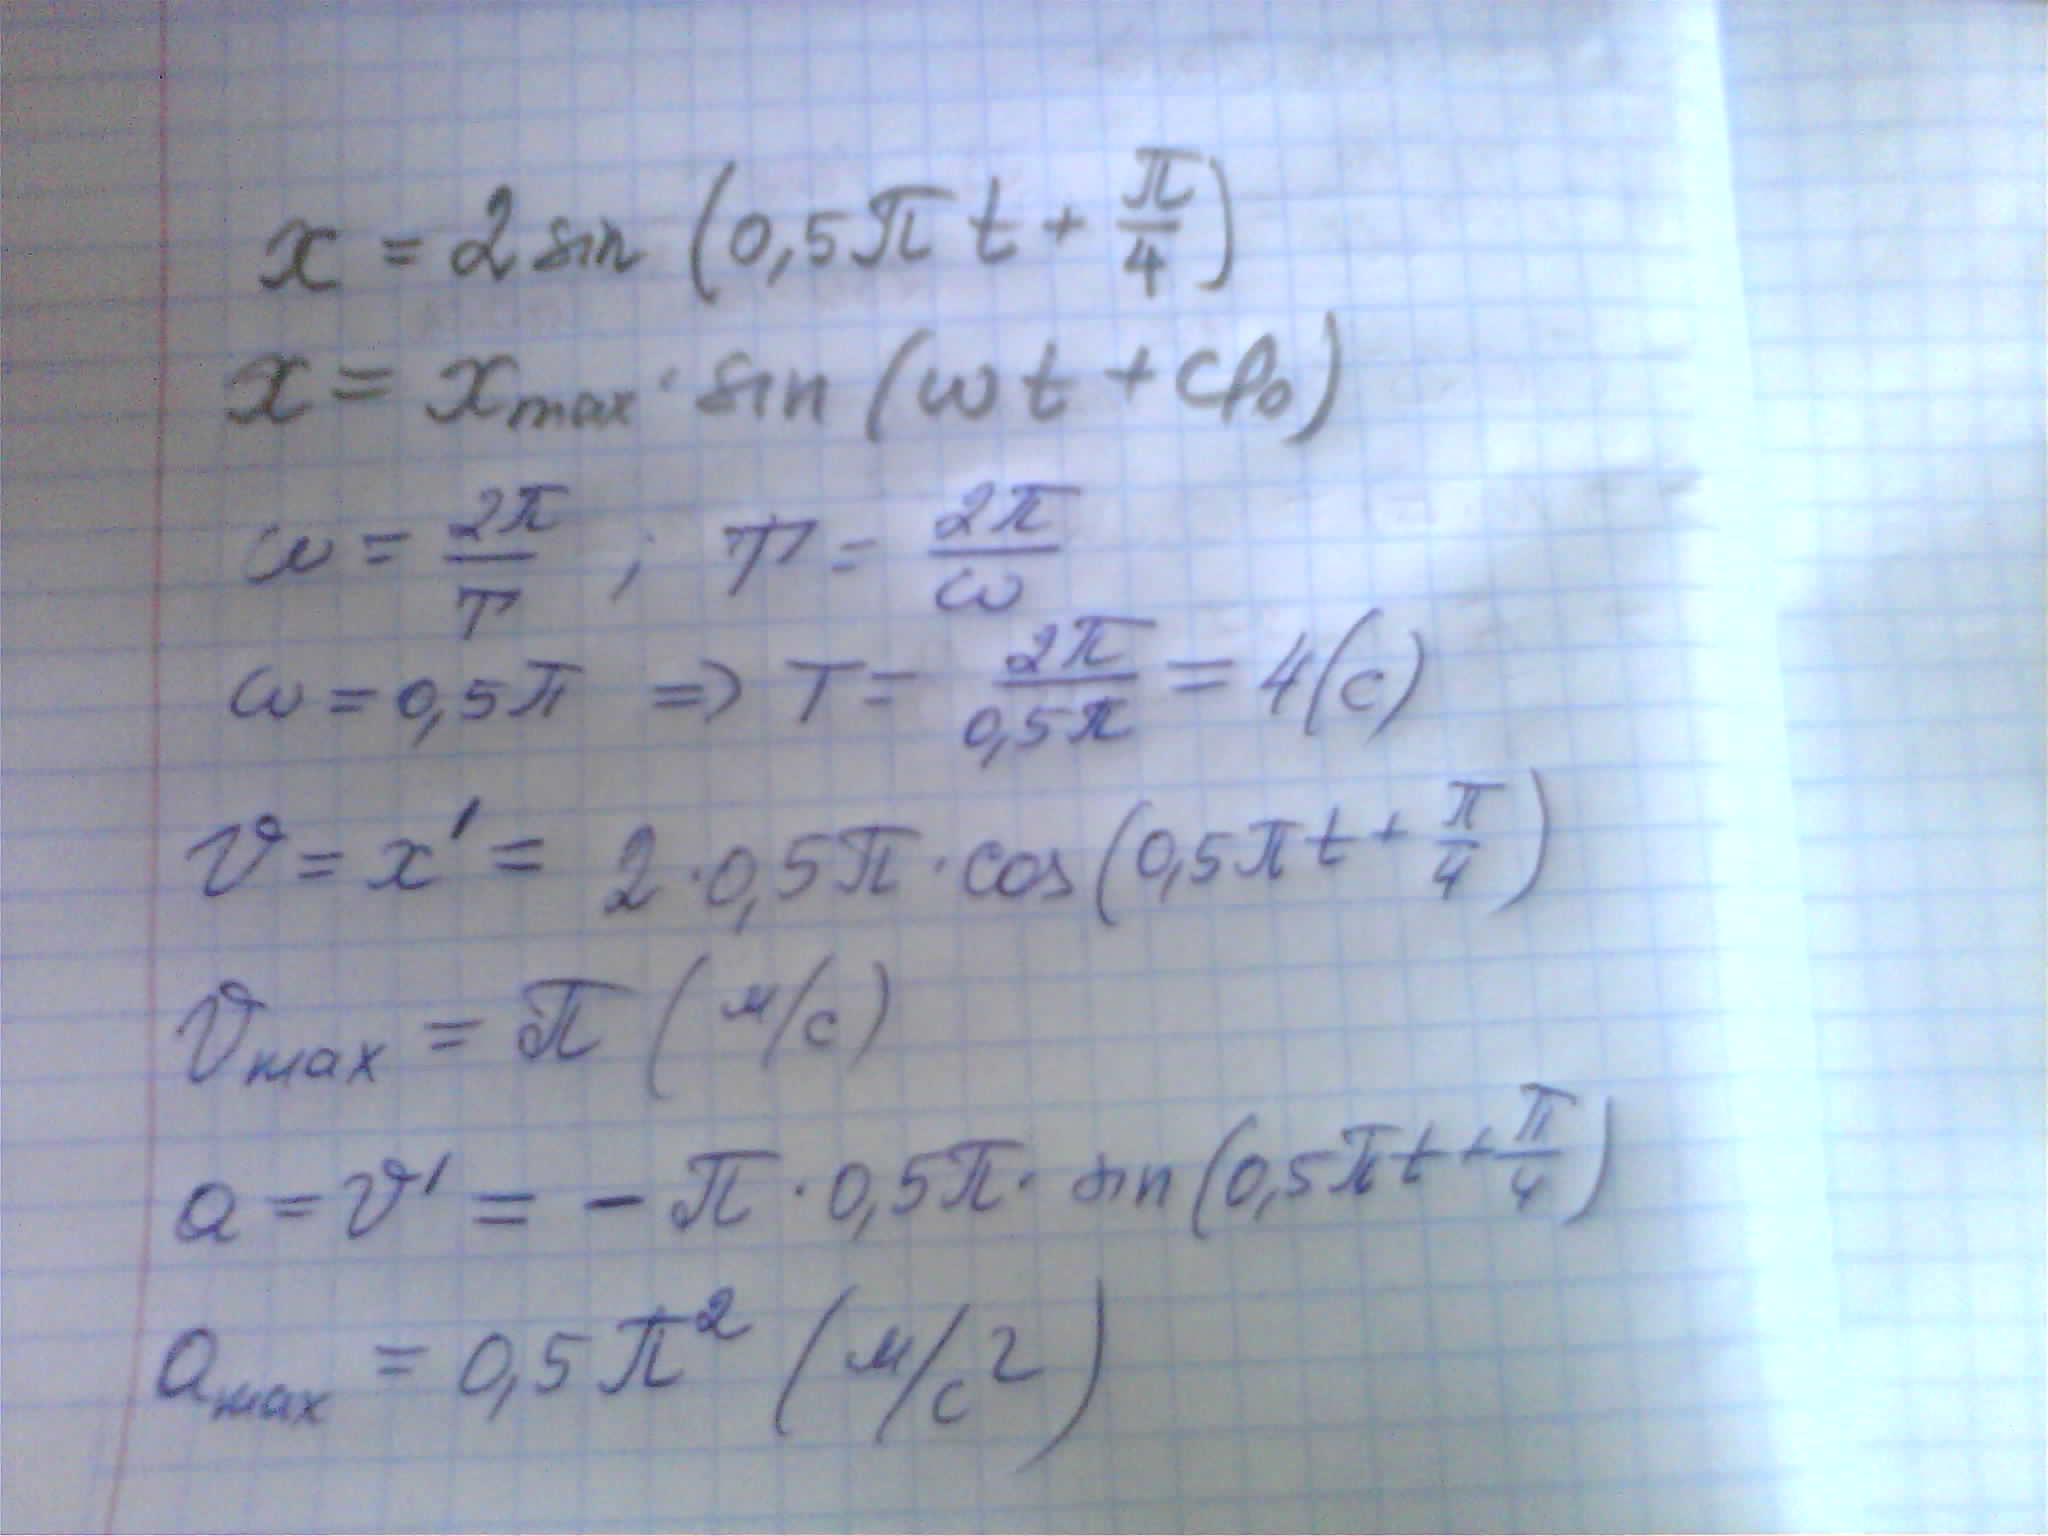 x = 2 sin (0,5π t + π/4)
x = xmax · sin (ωt + φ₀)
ω = 2π/T ; T = 2π/ω
ω = 0,5π => T = 2π/0,5π = 4(с)
v = x' = 2 · 0,5π · cos(0,5πt + π/4)
vmax = π (м/с)
a = v' = - π · 0,5π · sin(0,5πt + π/4)
amax = 0,5π² (м/с²)